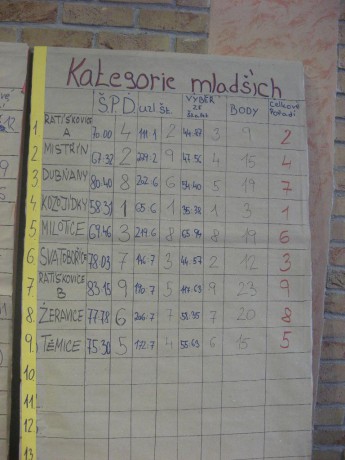 Kategorie mladších
ŠPD UZL. ŠT. VÝBĚR ZE BODY Celkové Pořadí
1. RATIŠKOVICE A 70.00 4 111.1 2 3 9 2
2. MISTŘÍN 67.32 2 9 47.56 4 15 4
3. DUBŇANY 80.40 8 202.6 6 54.40 5 19 7
4. KOZOJÍDKY 58.31 1 65.6 1 1 3 1
5. MILOTICE 69.46 3 219.6 8 8 19 6
6. SVATOBOŘICE 78.03 7 3 44.57 2 12 3
7. RATIŠKOVICE B 83.15 9 5 9 23 9
8. ŽERAVICE 77.78 6 7 7 20 8
9. TĚMICE 75.30 5 172.7 4 55.63 6 15 5
10.
11.
12.
13